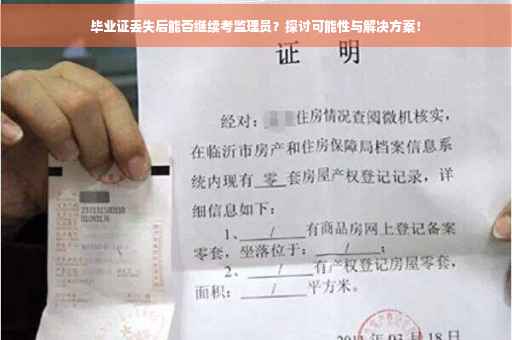 毕业证丢失后能否继续考监理员？探讨可能性与解决方案！
证 明
经对： 住房情况查阅微机核实，
在临沂市房产和住房保障局档案信息系
统内现有 零 套房屋产权登记记录，详
细信息如下：
1、 / 有商品房网上登记备案
零套，坐落位于： / ；
2、 / 有产权登记房屋零套，
面积： / 平方米。
03 月 18 日